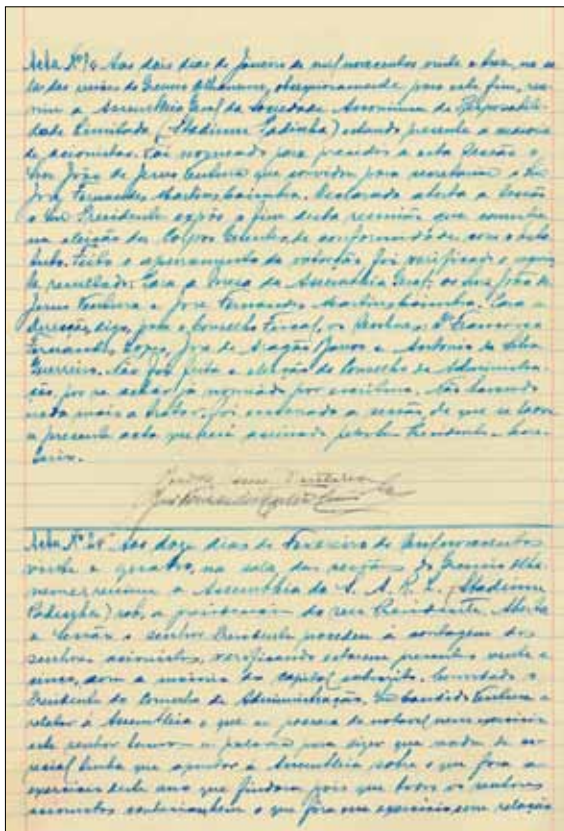 Acta Nº 1ª Aos dois dias de Janeiro de mil novecentos vinte e tres, na sa
la das sessões do Gremio Olhanense, obsequiosamente para este fim, reu
niu a Assembleia Geral da Sociedade Anonima de Responsabili
dade Limitada (Stadium Padinha) estando presente a maioria
de acionistas. Foi nomeado para presidir a esta sessão o
Snr. João de Jesus Ventura que convidou para secretario o Snr.
José Fernandes Martins Caimha. Declarada aberta a sessão
o Snr. Presidente expôs o fim desta reunião que consistia
na eleição dos Corpos Gerentes, de conformidade com o
Feito o apuramento da votação foi verificado o seguin
te resultado: Para a Meza da Assembleia Geral, os Snrs. João de
Jesus Ventura e José Fernandes Martins Caimha. Para a
direcção, digo, para o Conselho Fiscal, os Senhores: Dr. Francisco
Fernandes Lopes, José de Aragão Barros e Antonio da Silva
Guerreiro. Não foi feita a eleição do Conselho de Administra
ção, por se achar já nomeado por escritura. Não havendo
nada mais a tratar, foi encerrada a sessão, de que se lavrou
a presente acta que será assinada pelo Snr. Presidente e Secre
tario.
Acta Nº 2ª Aos doze dias de Fevereiro de mil novecentos
vinte e quatro, na sala das sessões do Gremio Olha
nense, reuniu a Assembleia da S. A. R. L. (Stadium
Padinha) sob a presidencia do seu Presidente. Aberta
a sessão o senhor Presidente procedeu à contagem dos
senhores acionistas, verificando estarem presentes vinte e
cinco, com a maioria do capital subscrito. Convidado o
Presidente do Conselho de Administração, Snr. Candido Ventura a
relatar à Assembleia o que se passara de notavel nesse exercicio
este senhor tomou a palavra para dizer que nada de es
pecial tinha que apontar à Assembleia sobre o que fora o
exercicio deste ano que findara pois que todos os senhores
acionistas conheciam bem o que fôra esse exercicio, com relação